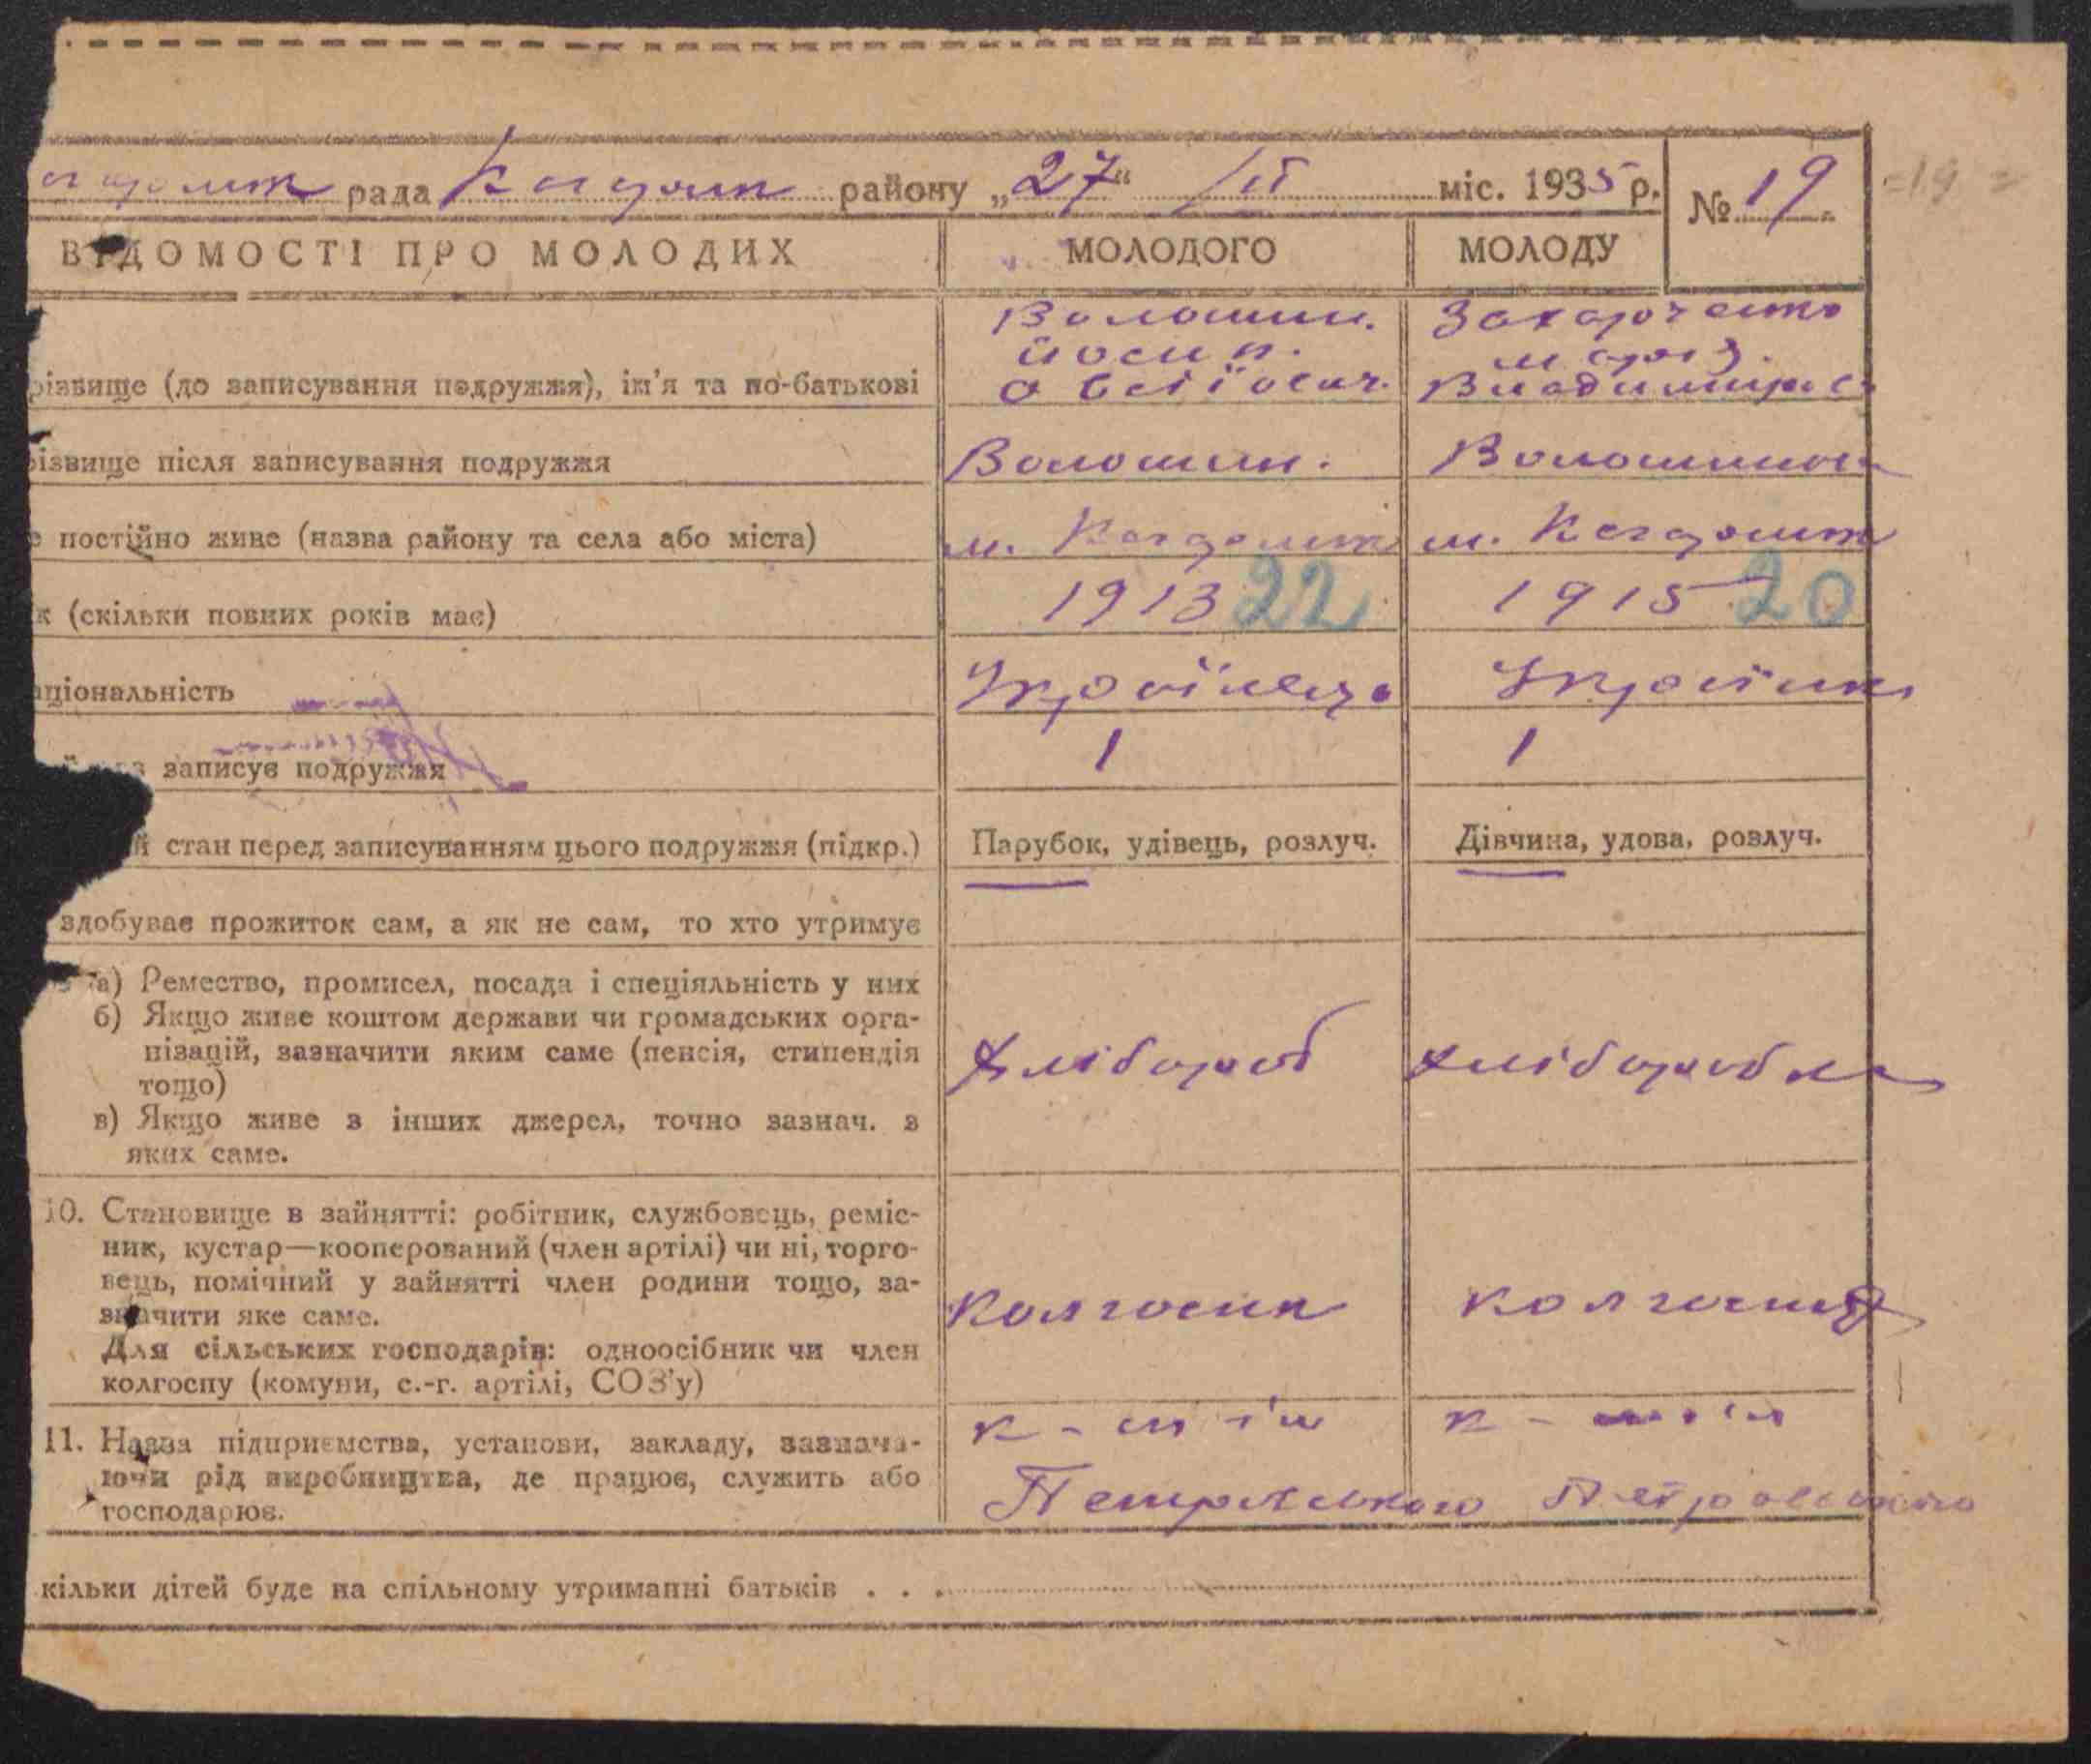 рада району „27“ міс. 1935 р. № 19
ВІДОМОСТІ ПРО МОЛОДИХ МОЛОДОГО МОЛОДУ
Волошин. Захарченко
йосип. марія.
різвище (до записування подружжя), ім'я та по-батькові
різвище після записування подружжя Волошин. Волошина
е постійно живе (назва району та села або міста) м. м.
к (скільки повних років має) 1913 22 1915 20
аціональність Українець Українка
записує подружжя 1 1
й стан перед записуванням цього подружжя (підкр.) Парубок, удівець, розлуч. Дівчина, удова, розлуч.
здобуває прожиток сам, а як не сам, то хто утримує
а) Ремество, промисел, посада і спеціяльність у них
б) Якщо живе коштом держави чи громадських орга-
нізацій, зазначити яким саме (пенсія, стипендія хлібороб хліборобка
тощо)
в) Якщо живе з інших джерел, точно зазнач. з
яких саме.
10. Становище в зайнятті: робітник, службовець, реміс-
ник, кустар—кооперований (член артілі) чи ні, торго-
вець, помічний у зайнятті член родини тощо, за-
значити яке саме. колгосп
Для сільських господарів: одноосібник чи член
колгоспу (комуни, с.-г. артілі, СОЗ'у)
11. Назва підприємства, установи, закладу, зазнача-
ючи рід виробництва, де працює, служить або
господарює. Петровського Петровського
кільки дітей буде на спільному утриманні батьків . . .